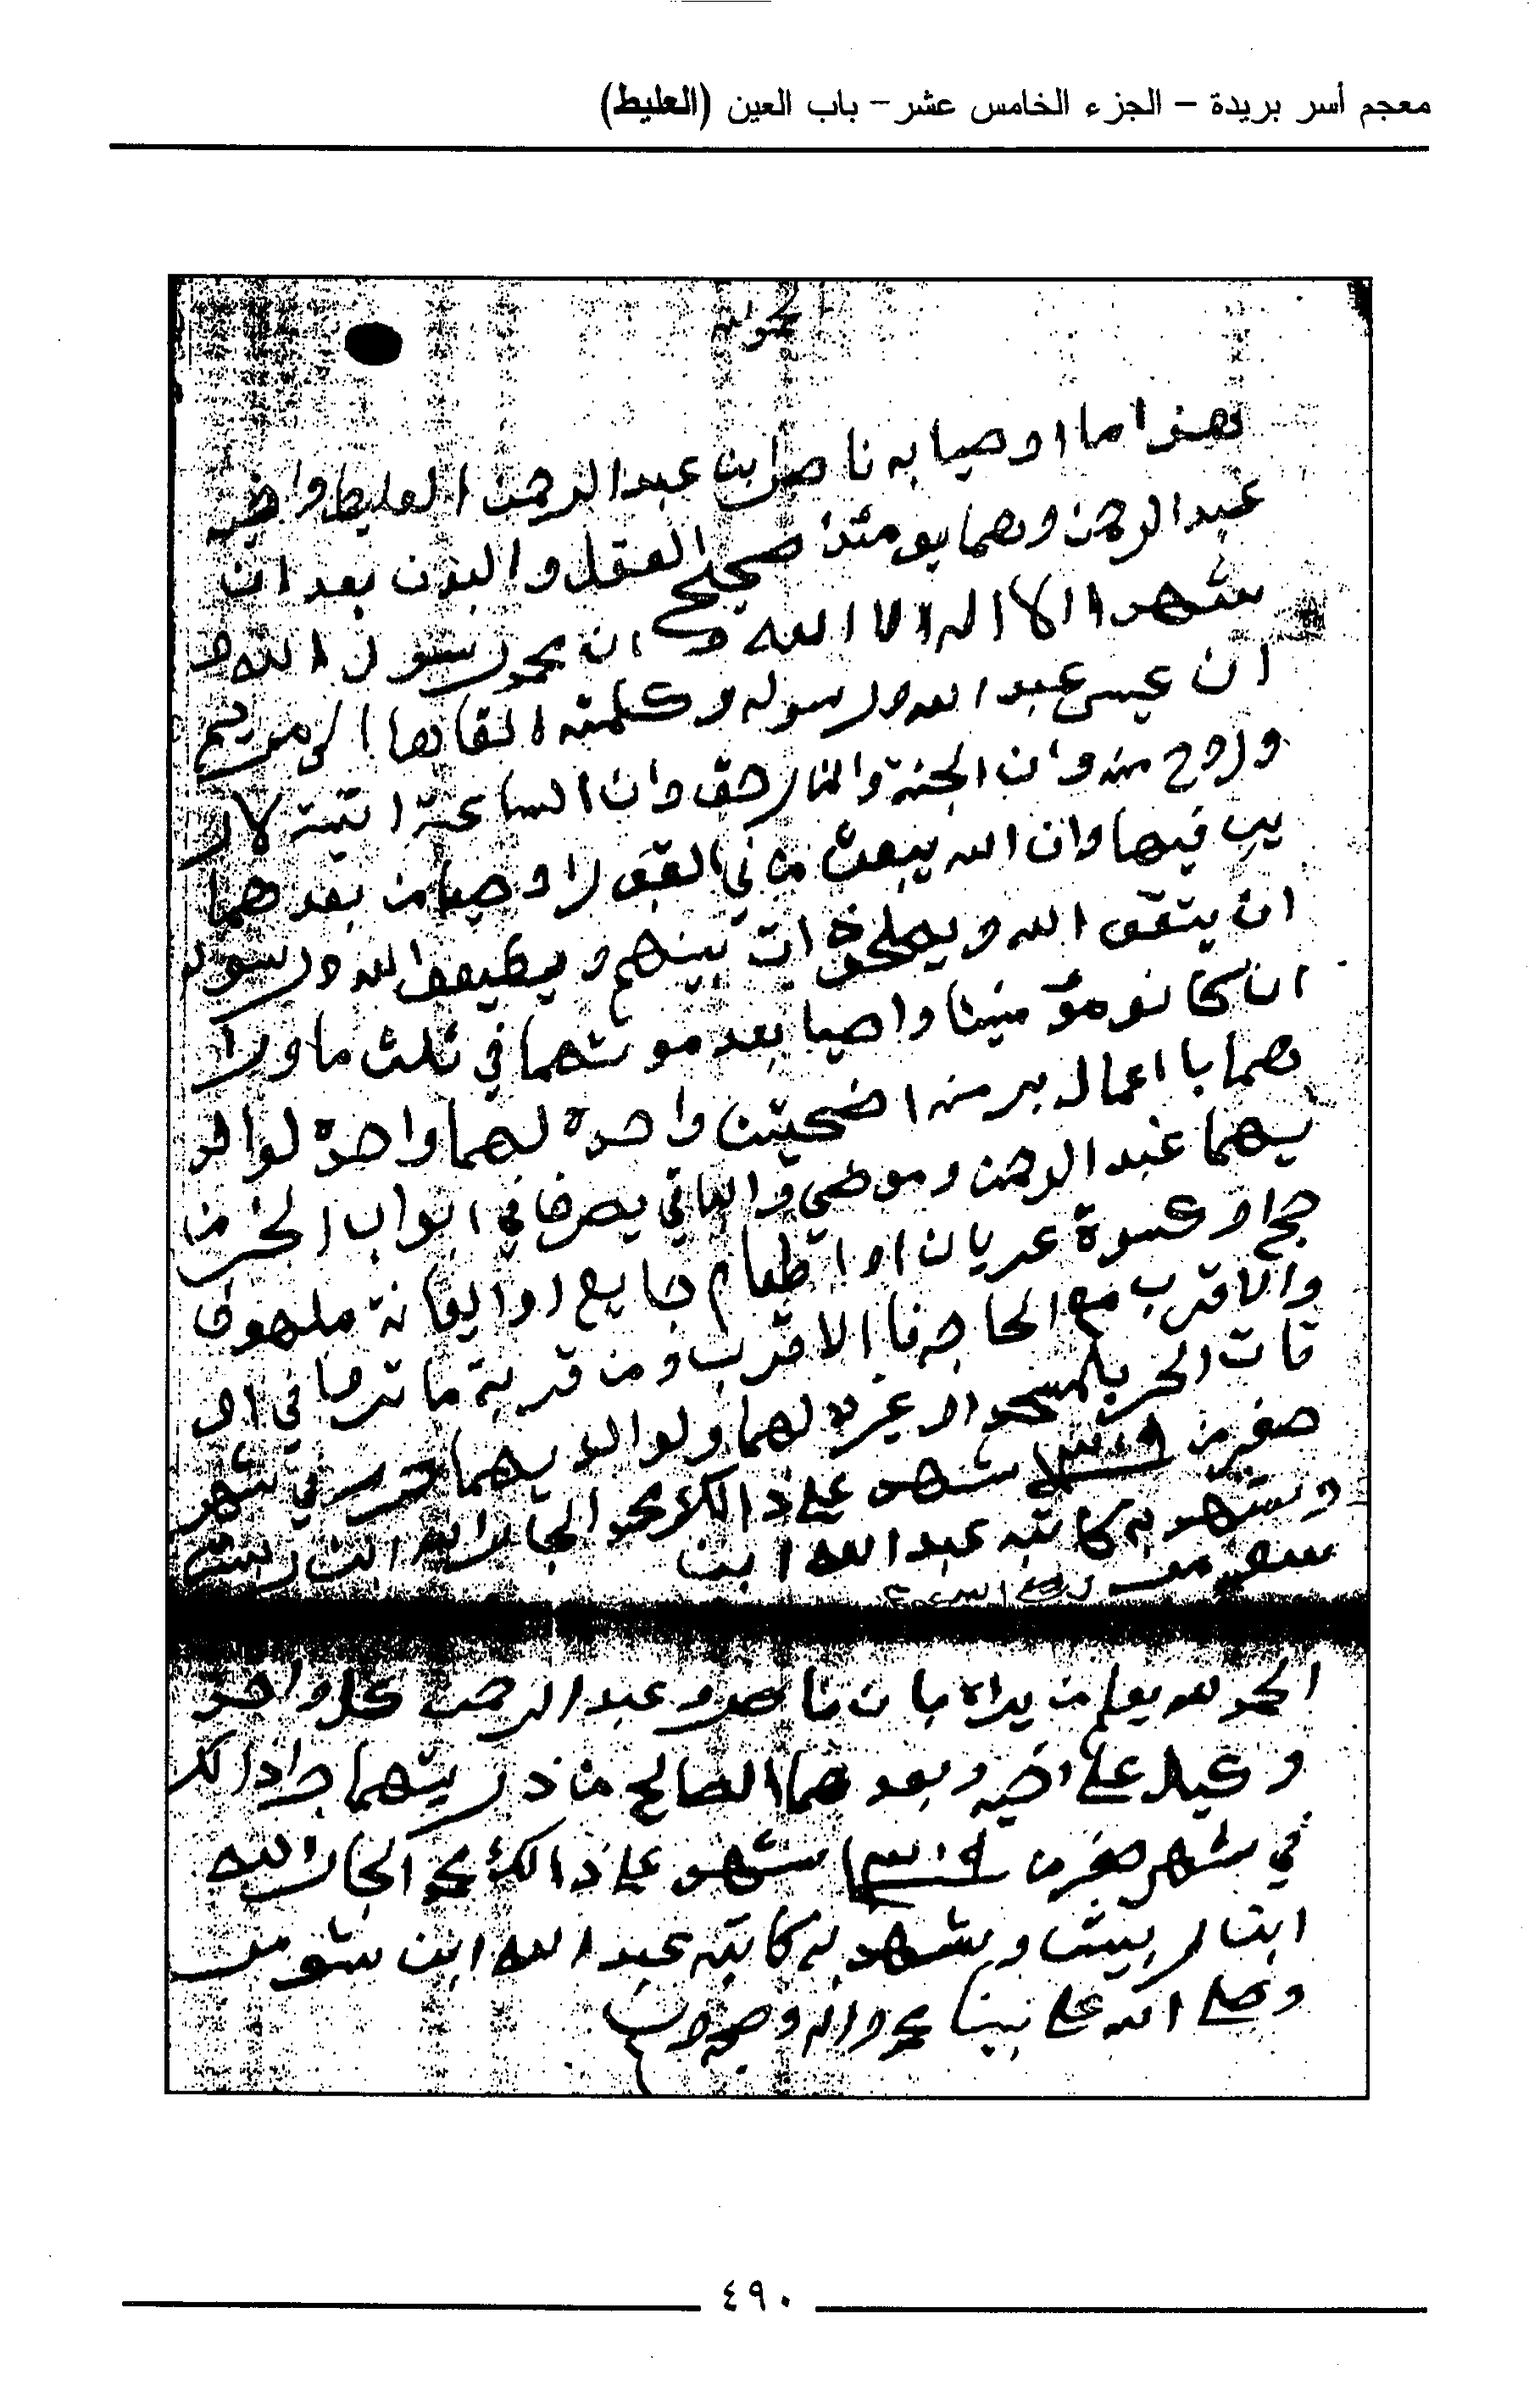 معجم أسر بريدة – الجزء الخامس عشر – باب العين (العليط)
هذا ما اوصيا به ناصر ابن عبد الرحمن العليط واخيه
عبد الرحمن وهما يومئذ صحيح العقل والبدن بعد ان
شهدا الا اله الا الله وان محمد رسول الله و
ان عيسى عبد الله ورسوله وكلمته القاها الى مريم
وروح منه وان الجنة والنار حق وان الساعة اتية لار
يب فيها وان الله يبعث من في القبور اوصيا من بعدهما
ان يتقو الله ويصلحو ذات بينهم ويطيعو الله ورسوله
ان كانو مؤمنينا واصيا بعد موتهما في ثلث ما ورا
هما با اعمال بر منه اضحيتين واحدة لهما واحدة لوالد
يهما عبد الرحمن وموضي والباقي يصرفا في ابواب الخير من
حج او كسوة عريان او اطعام جايع او ايغاثة ملهوف
والاقرب مع الحاجه فا الاقرب ومن قربة ما ترما في او
قات الحر بلمسجد او غيره لهما ولوالديهما حرر في شهر
صفر من شهد على ذالك محمد الجار الله ابن ربيش
وشهد به كاتبه عبد الله ابن
الحمد لله يعلم من يراه بان ناصر وعبد الرحمن كل واحد
وكيل على اخيه وبعدهما الصالح من ذريتهما جرا ذالك
في شهر صفر من شهد على ذالك محمد الجار الله
ابن ربيش وشهد به كاتبه عبد الله ابن
وصلى الله على نبينا محمد واله وصحبه
٤٩٠